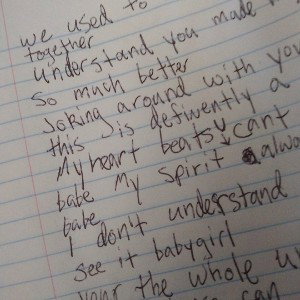 we used to
together
understand you made
so much better
Joking around with you
this is defiwently a
My heart beatsy cant
babe My Spirit alwa
babe
I don't understand
see it babygirl
your the whole
can